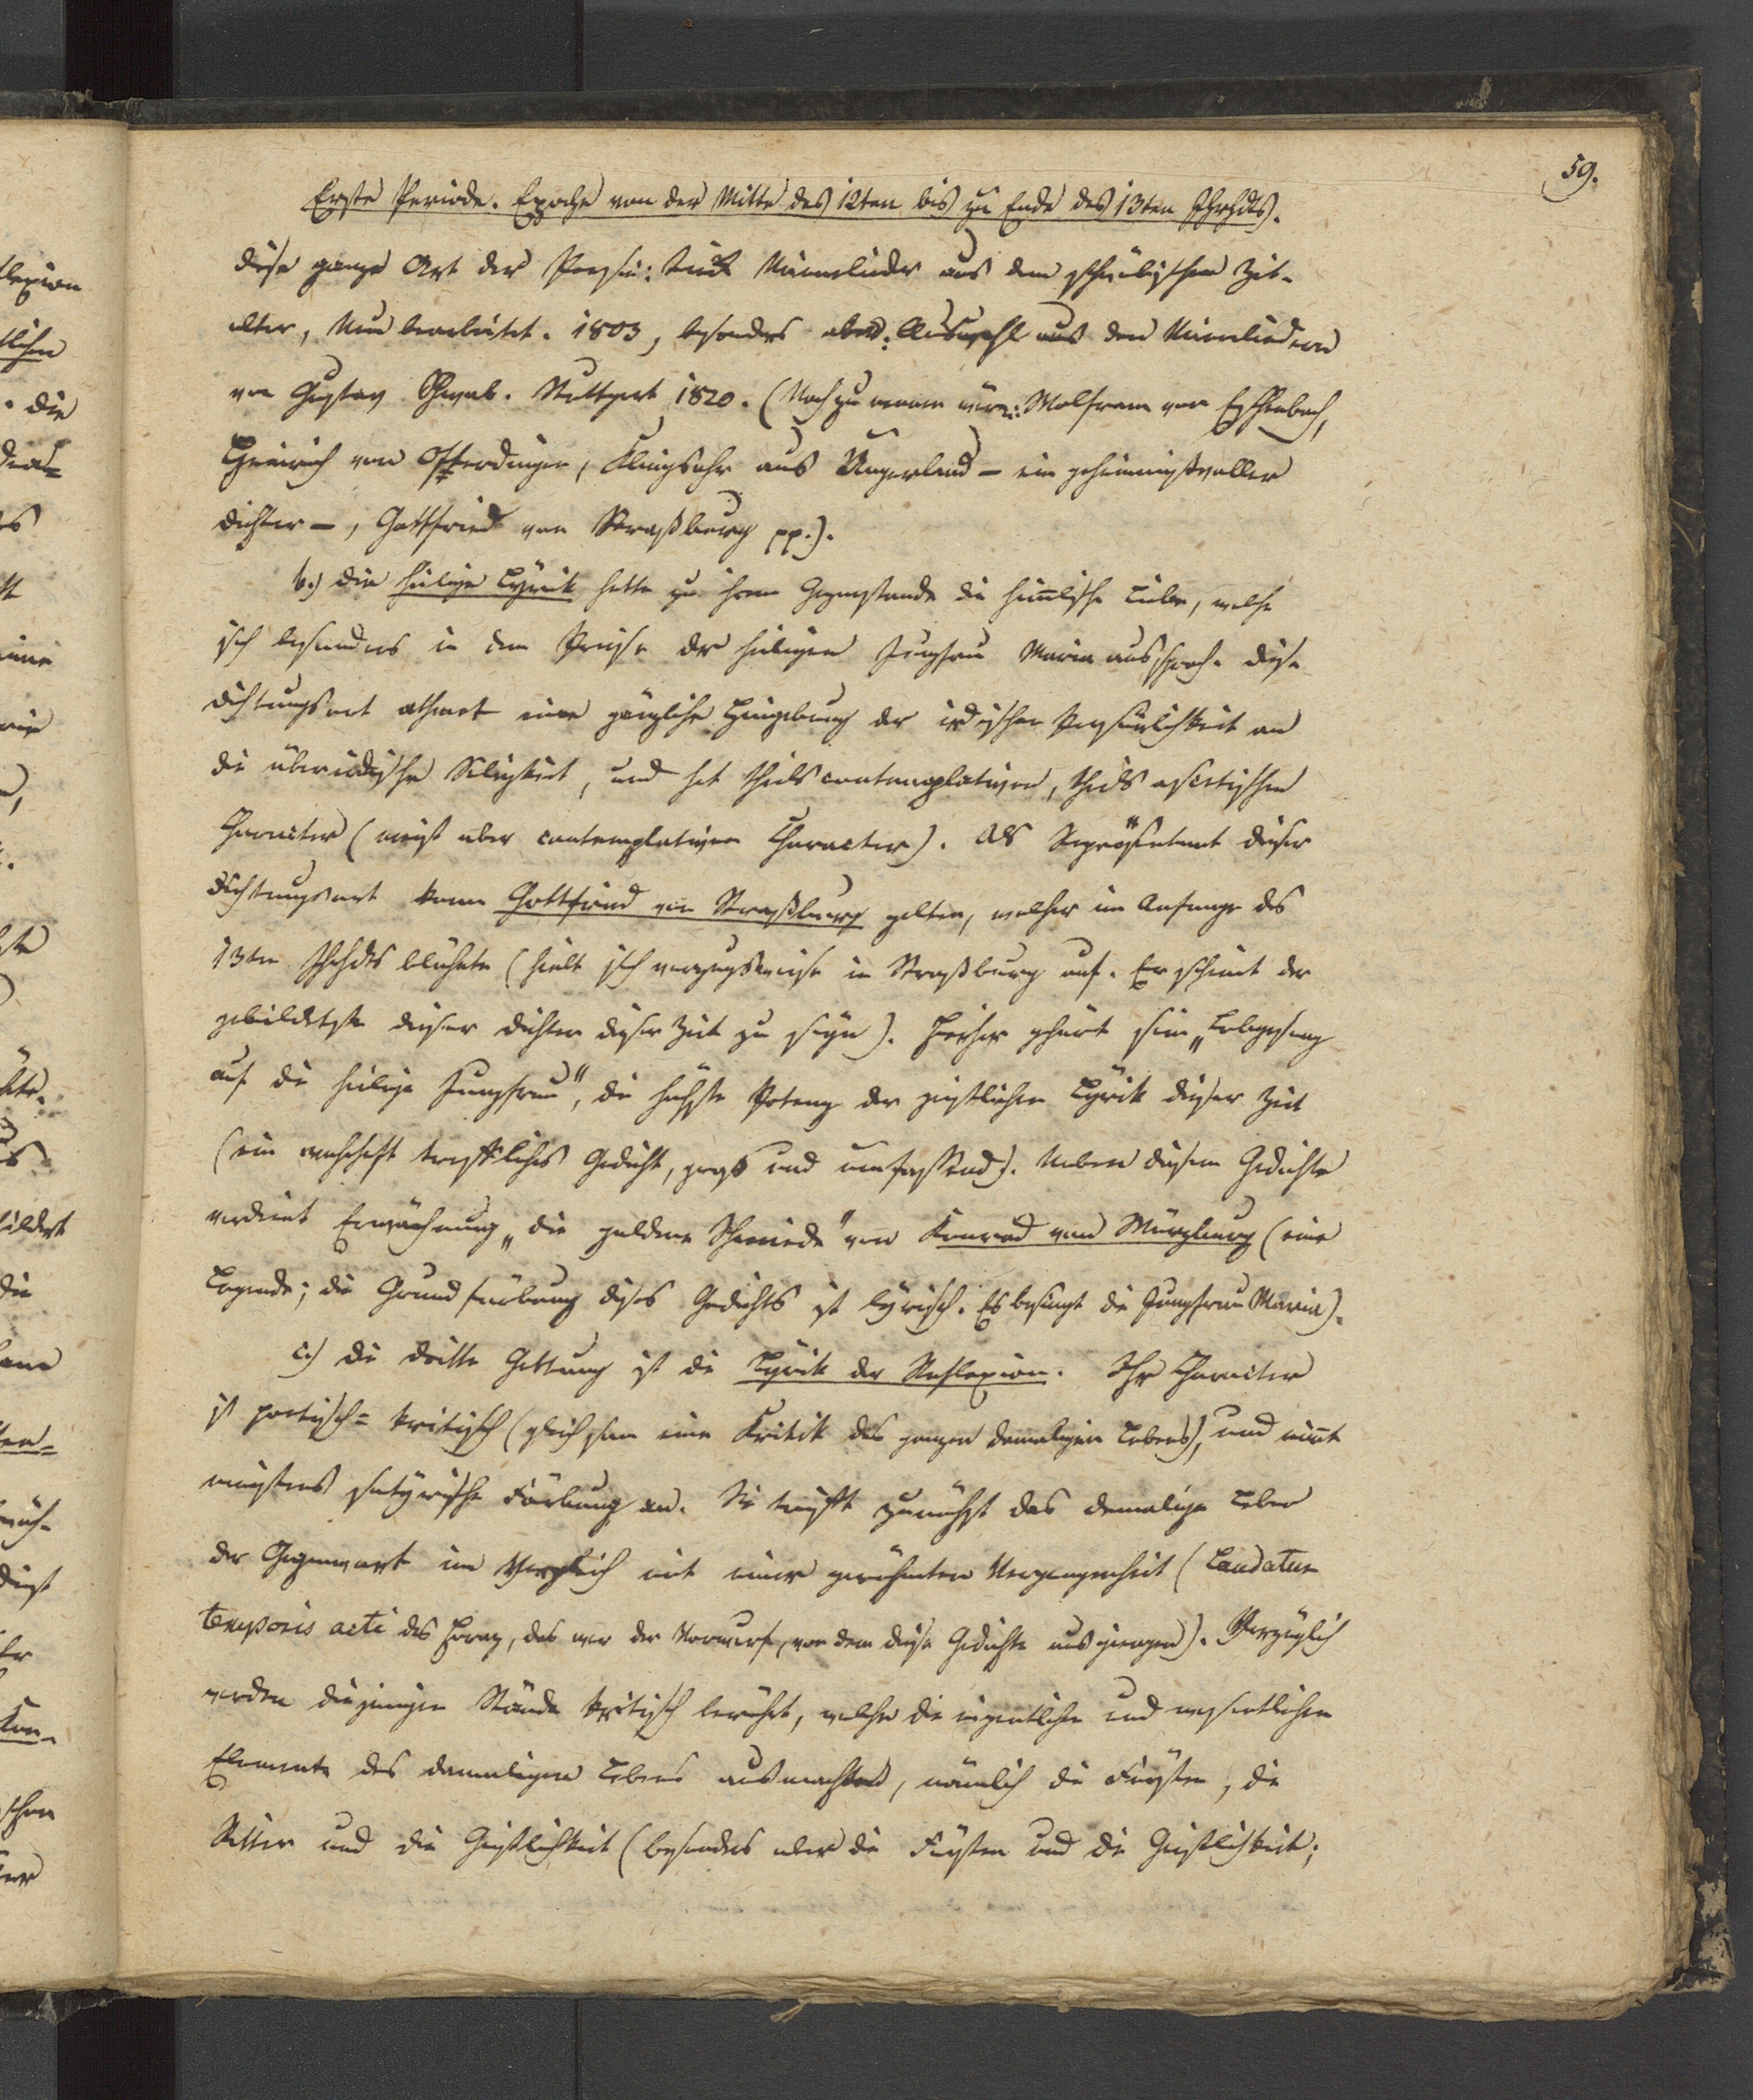 59.
Erste Periode. Epoche von der Mitte des 12ten bis zu Ende des 13ten Jhrhdts.
diese ganze Art der Poesie: Tieck Minnelieder aus dem schwäbischen Zeit-
alter, Neu bearbeitet. 1803, besonders aber: Auswahl aus den Minneliedern
von Gustav Schwab. Stuttgart 1820. (Noch zu nennen wären: Wolfram von Eschenbach,
Heinrich von Ofterdingen, Klingsohr aus Ungerland – ein geheimnißvoller
Dichter –, Gottfried von Straßburg pp.).
b.) Die heilige Lyrik hatte zu ihrem Gegenstande die himlische Liebe, welche
sich besonders in dem Preise der heiligen Jungfrau Maria aussprach. Diese
Dichtungsart athmet eine gänzliche Hingebung der irdischen Persönlichkeit an
die überirdische Seligkeit, und hat theils contemplativen, theils ascetischen
Character (meist aber contemplativen Character). Als Repräsentant dieser
Dichtungsart kann Gottfried von Straßburg gelten, welcher im Anfange des
13ten Jhrhdts blühete (hielt sich vorzugsweise in Straßburg auf. Er scheint der
gebildetste dieser Dichter dieser Zeit zu seyn). Hierher gehört sein „Lobgesang
auf die heilige Jungfrau“, die höchste Potenz der geistlichen Lyrik dieser Zeit
(ein wahrhaft treffliches Gedicht, groß und umfassend). Neben diesem Gedichte
verdient Erwähnung „die goldene Schmiede“ von Konrad von Würzburg (eine
Legende; die Grundfärbung dieses Gedichts ist lyrisch. Es besingt die Jungfrau Maria).
c.) Die dritte Gattung ist die Lyrik der Reflexion. Ihr Character
ist poetisch-kritisch (gleichsam eine Kritik des ganzen damaligen Lebens), und nimt
meistens satyrische Färbung an. Sie trifft zunächst das damalige Leben
der Gegenwart im Vergleich mit einer gerühmten Vergangenheit (Laudator
temporis acti des Horaz, das war der Vorwurf, von dem diese Gedichte ausgiengen). Vorzüglich
werden diejenigen Stände kritisch berührt, welche die eigentlichen und wesentlichen
Elemente des damaligen Lebens ausmachten, nämlich die Fürsten, die
Ritter und die Geistlichkeit (besonders aber die Fürsten und die Geistlichkeit;